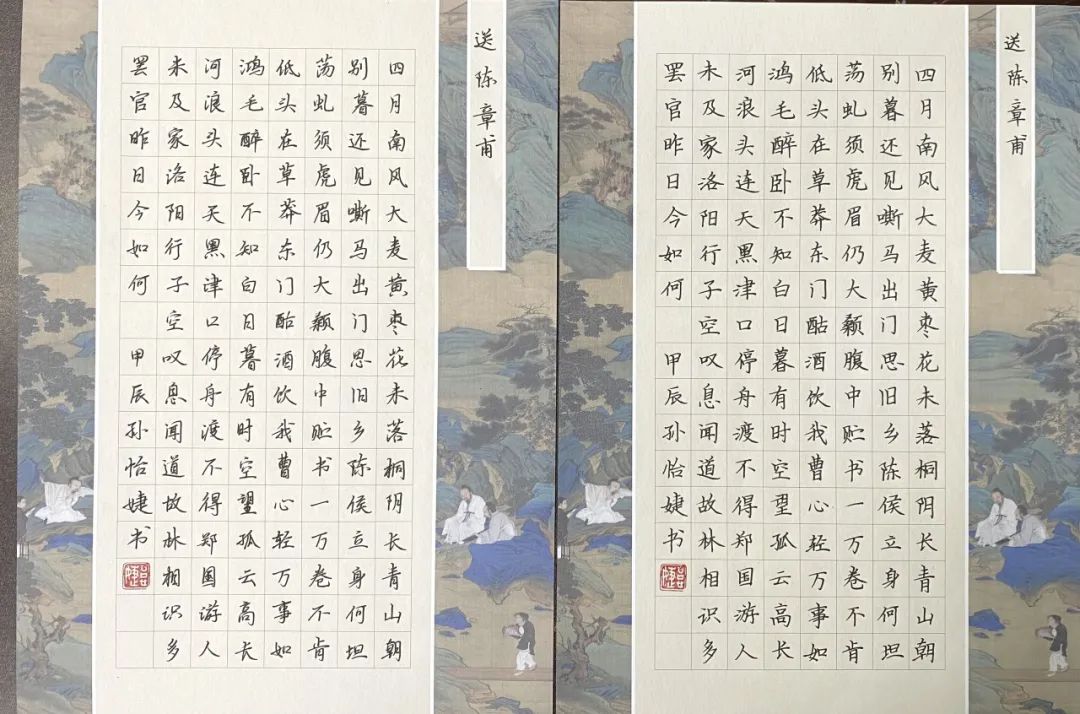 送陈章甫
四月南风大麦黄枣花未落桐阴长青山朝
别暮还见嘶马出门思旧乡陈侯立身何坦
荡虬须虎眉仍大颡腹中贮书一万卷不肯
低头在草莽东门酤酒饮我曹心轻万事如
鸿毛醉卧不知白日暮有时空望孤云高长
河浪头连天黑津口停舟渡不得郑国游人
未及家洛阳行子空叹息闻道故林相识多
罢官昨日今如何 甲辰孙怡婕书
送陈章甫
四月南风大麦黄枣花未落桐阴长青山朝
别暮还见嘶马出门思旧乡陈侯立身何坦
荡虬须虎眉仍大颡腹中贮书一万卷不肯
低头在草莽东门酤酒饮我曹心轻万事如
鸿毛醉卧不知白日暮有时空望孤云高长
河浪头连天黑津口停舟渡不得郑国游人
未及家洛阳行子空叹息闻道故林相识多
罢官昨日今如何 甲辰孙怡婕书